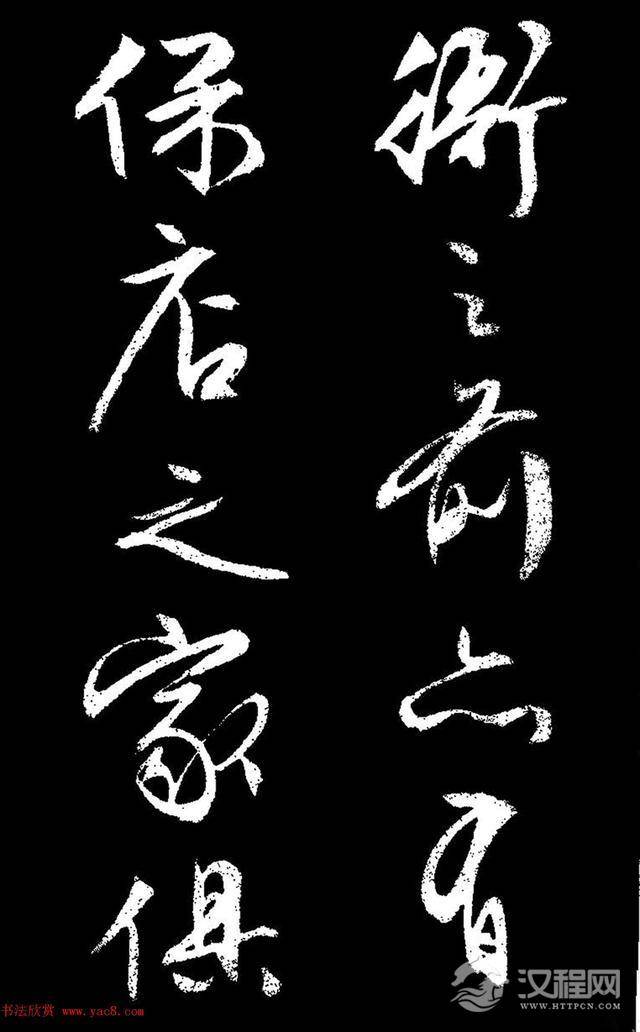 之前亦有
保店之家俱
书法欣赏 www.yac8.com
汉程网
WWW.HTTPCN.COM